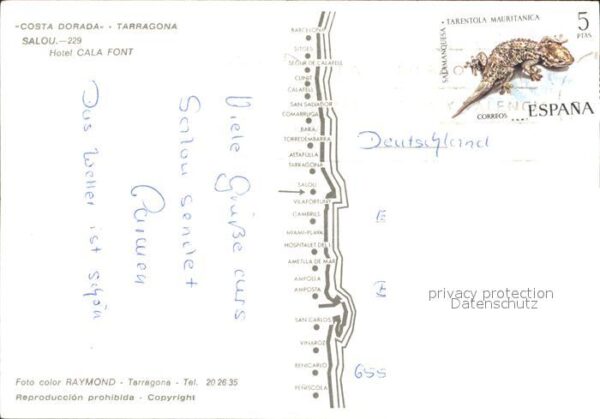 "COSTA DORADA" - TARRAGONA
SALOU.—229
Hotel CALA FONT
Viele Grüße aus
Salou sendet
Carmen
Das Wetter ist schön
Foto color RAYMOND - Tarragona - Tel. 20 26 35
Reproducción prohibida - Copyright
BARCELONA
SITGES
SEGUR DE CALAFELL
CUNIT
CALAFELL
SAN SALVADOR
COMARRUGA
BARA
TORREDEMBARRA
ALTAFULLA
TARRAGONA
SALOU
VILAFORTUNY
CAMBRILS
MIAMI-PLAYA
HOSPITALET DEL I.
AMETLLA DE MAR
AMPOLLA
AMPOSTA
SAN CARLOS
VINAROZ
BENICARLO
PEÑISCOLA
SALAMANQUESA
TARENTOLA MAURITANICA
5
PTAS
CORREOS
ESPAÑA
Deutschland
E
655
privacy protection
Datenschutz